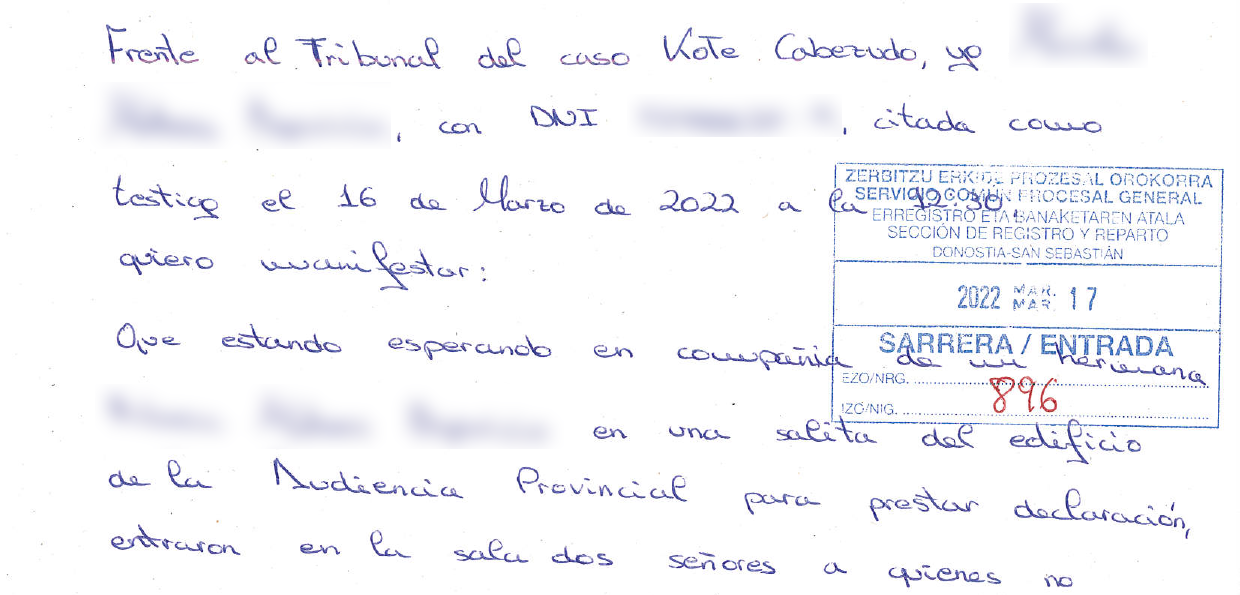 Frente al Tribunal del caso Kote Cabezudo, yo
, con DNI , citada como
testigo el 16 de Marzo de 2022 a la 12:30,
quiero manifestar:
Que estando esperando en compañia de mi hermana
en una salita del edificio
de la Audiencia Provincial para prestar declaración,
entraron en la sala dos señores a quienes no
ZERBITZU ERKIDE PROZESAL OROKORRA
SERVICIO COMUN PROCESAL GENERAL
ERREGISTRO ETA BANAKETAREN ATALA
SECCIÓN DE REGISTRO Y REPARTO
DONOSTIA-SAN SEBASTIÁN
2022 MAR. MAR. 17
SARRERA / ENTRADA
EZO/NRG. 896
IZO/NIG.